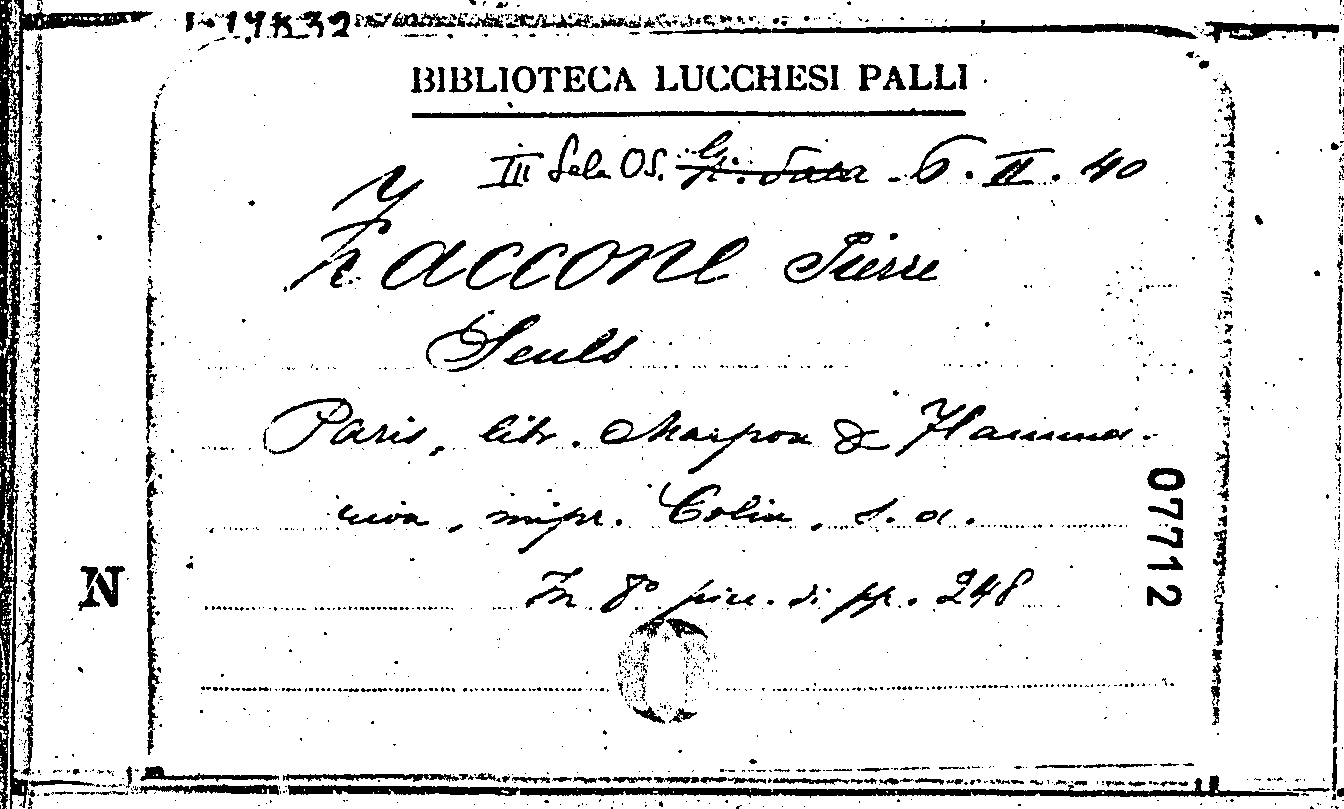 BIBLIOTECA LUCCHESI PALLI
III Sala OS. G. Sala - 6. II. 40
Zaccone Pierre
Seuls
Paris, libr. Marpon & Flamma-
rion, impr. Colin, s. a.
In 8º picc. di pp. 248
07712
N